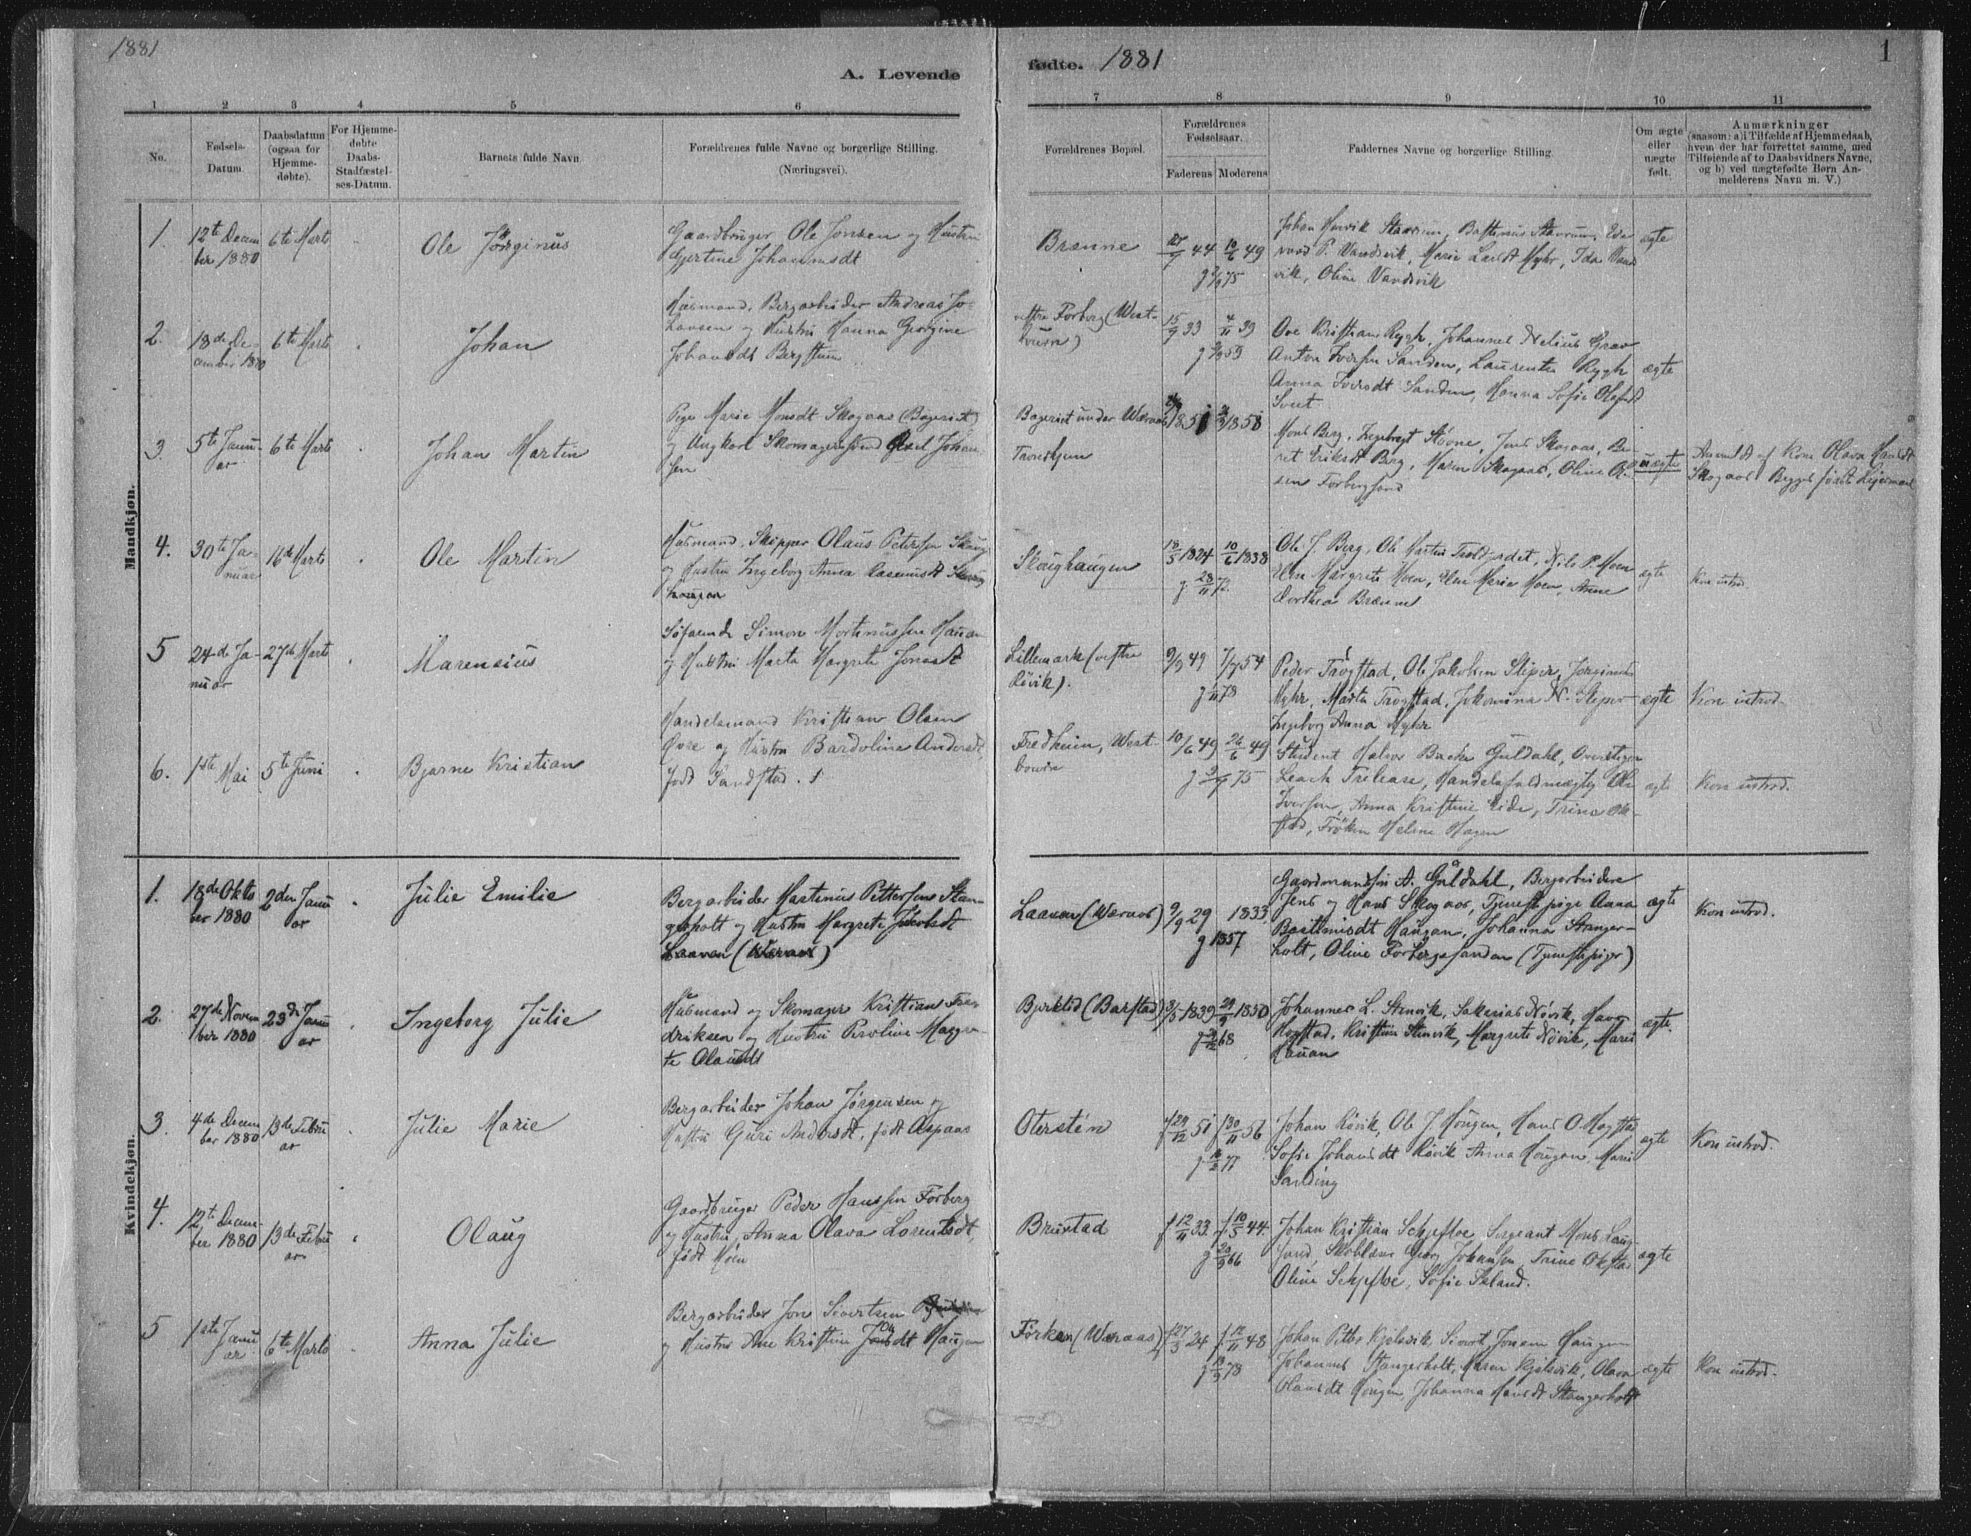 1881
A. Levende
fødte. 1881
1
1 2 3 4 5 6 7 8 9 10 11
No.
Fødsels-
Datum.
Daabsdatum
(ogsaa for
Hjemme-
døbte).
For Hjemme-
døbte
Daabs-
Stadfæstel-
ses-Datum.
Barnets fulde Navn
Forældrenes fulde Navne og borgerlige Stilling.
(Næringsvei).
Forældrenes Bopæl.
Forældrenes
Fødselsaar.
Faderens Moderens
Faddernes Navne og borgerlige Stilling.
Om ægte
eller
uægte
født.
Anmærkninger
(saasom: a) i Tilfælde af Hjemmedaab,
hvem der har forrettet samme, med
Tilføiende af to Daabsvidners Navne,
og b) ved uægtefødte Børn An-
melderens Navn m. V.)
Mandkjøn.
1.
12te Decem
ber 1880
6te Marts
Ole Jørginus
Gaardbruger Ole Jonsen og Hustru
Gjertine Johannesdt
Brænne
44 10/6 49
75
Johan Henrik Stavrum, Bastinus Stavrum, Ed-
vard P. Vandsvik, Marie Myhr, Ida Vand
vik, Oline Vandsvik
ægte
2.
18de De-
cember 1880
6te Marts
Johan
Husmand, Bergarbeider Andreas Jo-
hansen og Hustru Hanna Georgine
Johansdt Bergstuen
vestre Forberg (West-
bourn)
15/9 33 4/11 39
59
Ove Kristian Rygh, Johannes Nelius Grav
Anton Iversen Sanden, Laurentse Rygh
Anna Iversdt Sanden, Hanna Sofie Olofsdt
ægte
3.
5te Janu-
ar
6te Marts
Johan Martin
Pige Marie Monsdt Skogaas (Bageriet)
og Ungkarl Skomagersvend Axel Johan
sen
Bageriet under Wæraas
1851 1858
Mons Berg, Ingebregt Støvne, Jens Skogaas, Be-
ret Eriksdt Berg, Maren Skogaas, Oline Ol-
sen Forbergsand
uægte
Anmeldt af Kone Olava Hansdt
Skogaas Begges første Leiermaal
4.
30te Ja-
nuar
16de Marts
Ole Martin
Husmand, Skipper Olaus Petersen Skaug
og Hustru Ingeborg Anna Rasmusdt Skaug
haugen
Skaughaugen
18/5 1824 10/6 1838
g. 28/11 72.
Ole J. Berg, Ole Martin Nils P. Moen
Else Margrete Moen, Else Marie Moen, Anne
Dorthea Brænne
ægte
Kon introd.
5
24de Ja-
nuar
27de Marts
Marensius
Søfarende Simon Mortinussen Hauan
og Hustru Marta Margrete Jonasdt
Lillemark (vestre
Røvik).
9/9 49 7/7 54
78
Peder Trøgstad, Ole Jakobsen Steper, Jørginus
Myhr, Marta Trøgstad, Jakomina N. Steper
Ingeborg Anna Myhr
ægte
Kon introd.
6.
1ste Mai
5te Juni
Bjarne Kristian
Handelsmand Kristian Olsen
Øvre og Hustru Bardoline Andersdt,
født Sandstad.
Fredheim, West-
bourn
10/6 49 26/6 49
75
Student Halvor Bache Guldahl, Overstiger
Leach Trelease, Handelsfuldmægtig Ole
Iversen, Anna Kristine Eide, Trine Ok-
stad, Frøken Helene Hagen
ægte
Kon introd.
Kvindekjøn.
1.
18de Okto
ber 1880
2den Janu
ar
Julie Emilie
Bergarbeider Martinus Pettersen Stan-
gerholt og Hustru Margrete Jakobsdt
Laavan (Wæraas)
Laavan (Wæraas)
9/9 29 1833
g 1857
Gaardmandssøn A. Guldahl, Bergarbeidere
Jens og Hans Skogaas, Tjenestepige Anna
Bastinusdt Haugan, Johanna Stanger-
holt, Oline Forbergssanden (Tjenestepiger)
ægte
Kon introd.
2.
27de Novem
ber 1880
23de Janu
ar
Ingeborg Julie
Husmand og Skomager Kristian Fre-
driksen og Hustru Peroline Margre-
te Olausdt
Bjerklid (Barstad)
1839 1850
68
Johannes L. Stenvik, Sakarias Røvik, Hans
Hogstad, Kristine Stenvik, Margrete Røvik, Marie
Hauan
ægte.
3.
4de Decem
ber 1880
13de Febru
ar
Julie Marie
Bergarbeider Johan Jørgensen og
Hustru Guri Andersdt, født Aspaas
Oterstén
f 29/12 51 f 30/11 56
77
Johan Røvik, Ole J. Haugen, Hans O. Hogstad
Sofie Johansdt Røvik Anna Haugen, Marie
ægte
Kon introd.
4.
12te Decem-
ber 1880
13de Febru
ar
Olaug
Gaardbruger Peder Hanssen Forberg
og Hustru Anna Olava Lorentsdt,
født Moen
Brustad
f 12/11 33 f 10/5 44
66
Johan Kristian Schjefloe, Sergeant Mons Laug-
sand, Skolelærer Georg Johansen, Trine Okstad
Oline Schjefloe, Sofie Saland.
ægte
5
1ste Janu
ar
6te Marts
Anna Julie
Bergarbeider Jon Sivertsen
og Hustru Ane Kristine Haugen
Forkan (Wæraas)
f 27/3 24 f 12/11 48
78
Johan Petter Kjelsvik, Sivert Jonsen Haugen
Johannes Stangerholt, Maren Kjelsvik, Olava
Olausdt Haugen, Johanna Hansdt Stangerholt
ægte
Kon introd.